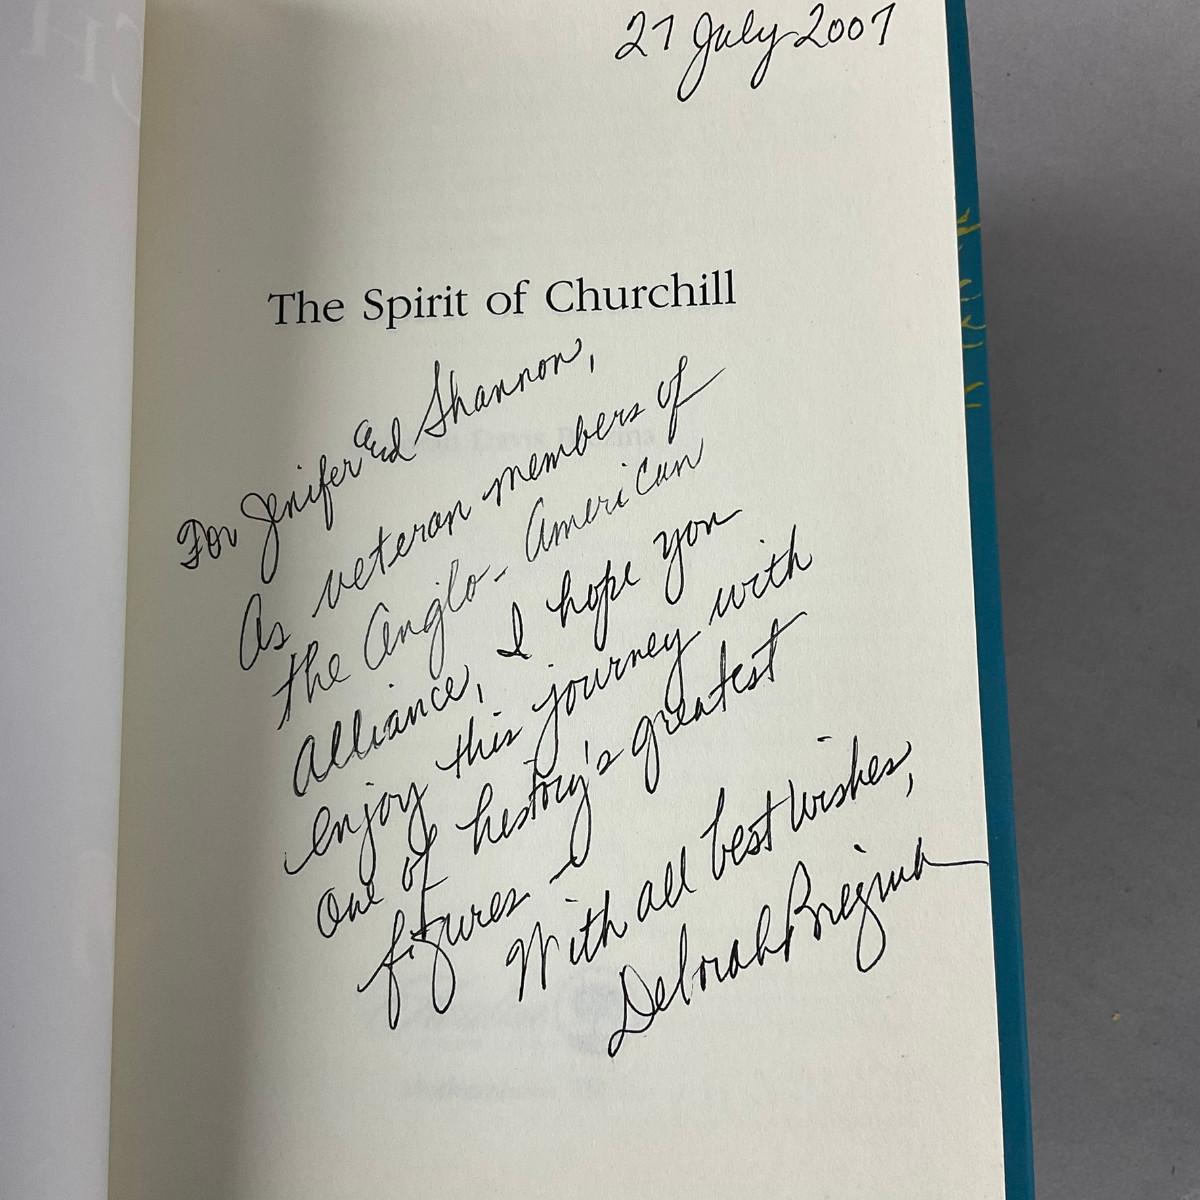 27 July 2007
The Spirit of Churchill
For Jenifer and Shannon,
As veteran members of
the Anglo-American
Alliance, I hope you
enjoy this journey with
one of history's greatest
figures!
With all best wishes,
Deborah Brezina